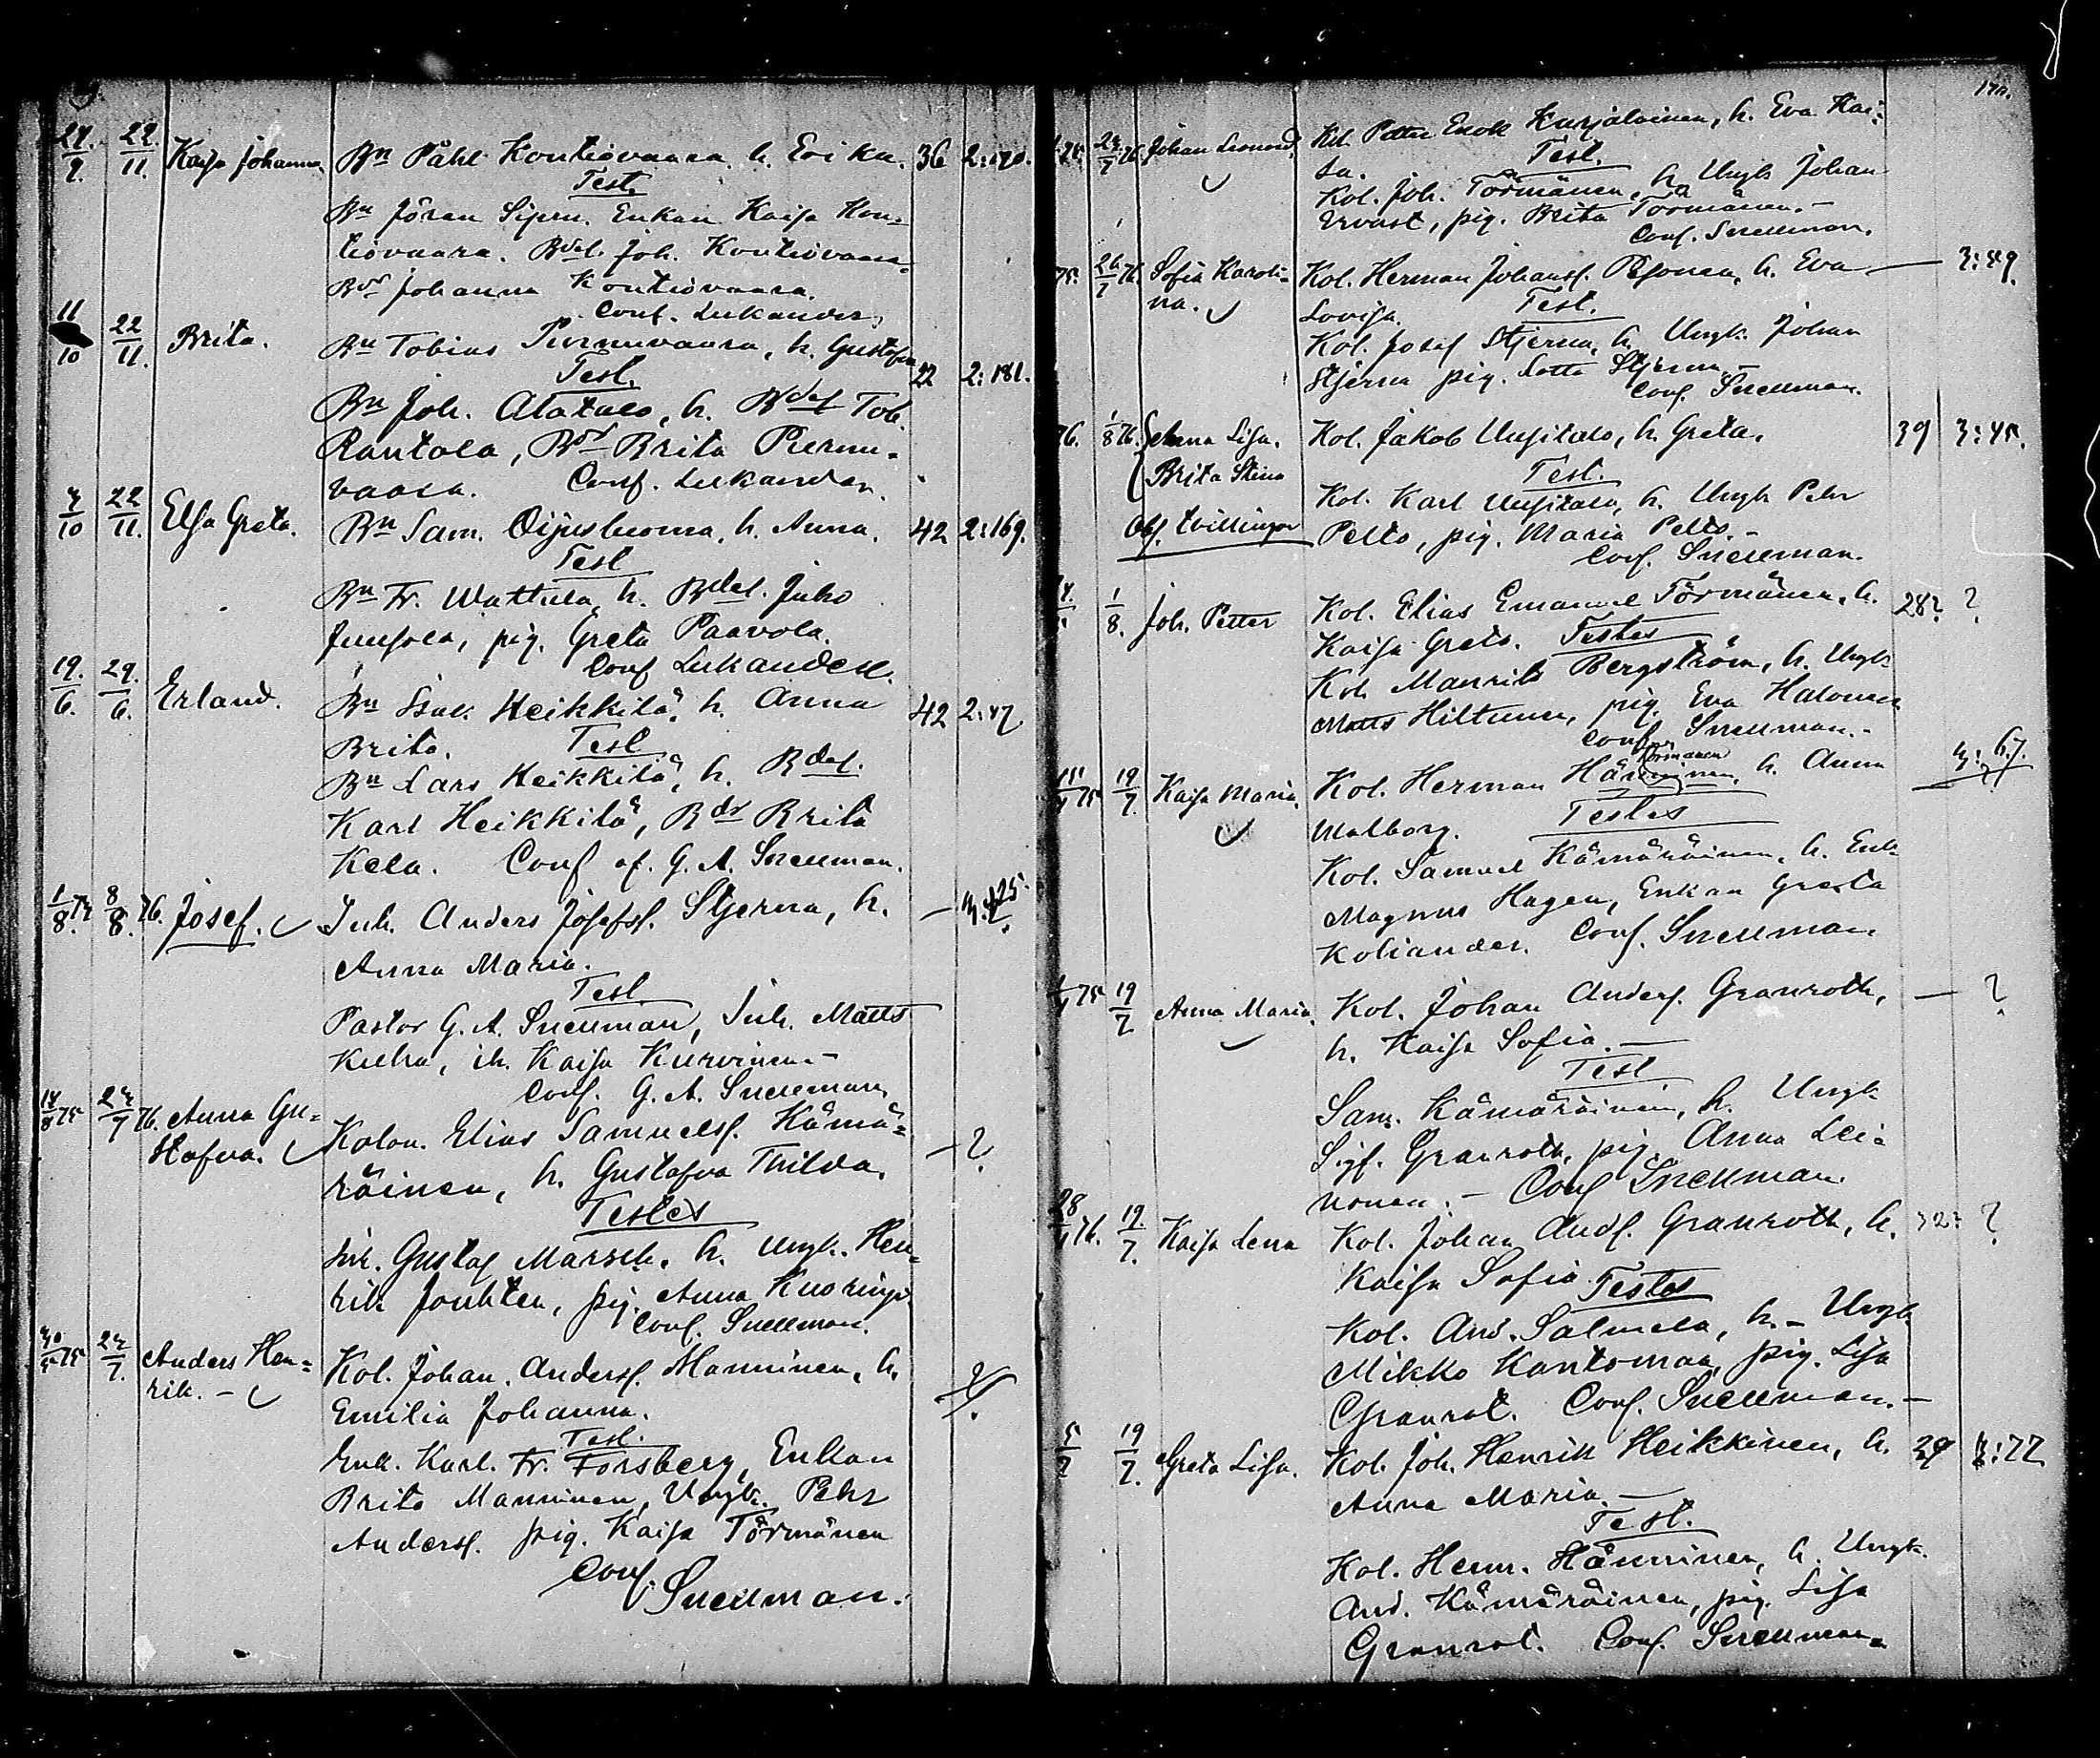 27/9. 22/11. Kaisa Johanna. Bn Påhl Kontiovaara. h. Erika. 36 2:170.
Test.
Bn Jöran Sipru. Enkan Kaisa Kon-
tiovaara. Bdel. Joh. Kontiovaara.
Bdr Johanna Kontiovaara.
Conf. Lukander.
11/10 22/11. Brita. Bn Tobias Purnuvaara, h. Gustafva 22 2:181.
Test.
Bn Joh. Alatalo, h. Bdel Tob.
Rantala, Bdr Brita Purnu-
vaara. Conf. Lukander.
3/10 22/11. Elsa Greta. Bn Sam. Oijusluoma, h. Anna. 42 2:169.
Test
Bn Fr. Wattula, h. Bdel. Juho
Juusola, pig. Greta Paavola.
Conf Lukander.
19./6. 29./6. Erland. Bn Isak Heikkilä. h. Anna 42 2:47
Brita. Test
Bn Lars Heikkilä, h. Bdel.
Karl Heikkilä, Bdr Brita
Kela. Conf af. G. A. Snellman.
1/8.74 8/8.76. Josef. Inh. Anders Josefss. Stjerna, h. —
Anna Maria.
Test
Pastor G. A. Snellman, Inh. Matts
Kulha, ih. Kaisa Kurvinen. –
Conf. G. A. Snellman
14/8 75 23/7 76. Anna Gu- Kolon. Elias Samuelss. Kämä- — ?
stafva. räinen, h. Gustafva Thilda.
Testes
Inh. Gustaf Marsch. h. Ungk. Hen-
rik Jouhten, pig. Anna Kuoringi
Conf. Snellman.
30/5 75 23/7. Anders Hen- Kol. Johan. Anderss. Manninen, h. ?
rik. – Emilia Johanna.
Test.
Enk. Karl. Fr. Forsberg, Enkan
Brita Manninen, Ungk. Pehr
Anderss. pig. Kaisa Törmänen
Conf.
Snellman.
170.
75. 23/7 76. Johan Leonard. Kol. Petter Enok Karjalainen, h. Eva Kai-
sa. Test.
Kol. Joh. Törmänen, h. Ungk Johan
Ervast, pig. Brita Törmänen. –
Conf. Snellman.
75. 26/7 76. Sofia Karoli- Kol. Herman Johanss. Pesonen, h. Eva — 3:49.
na. Lovisa. Test.
Kol. Josef Stjerna, h. Ungk. Johan
Stjerna pig. Lotta Stjerna. –
Conf. Snellman.
76. 1/8 76. Anna Lisa. Kol. Jakob Uusitalo, h. Greta. 39 3:45.
Brita Stina Test.
Kol. Karl Uusitalo, h. Ungk Pehr
Obs. tvillingar Pelto, pig. Maria Pelto. –
Conf. Snellman.
1/8. Joh. Petter Kol. Elias Emanuel Törmänen, h. 28? ?
Kaisa Greta. Testes
Kol. Maurits Bergström, h. Ungk
Matts Hiltunen, pig. Eva Halonen
Conf. Snellman. –
Törmänen
75 19/7 Kaisa Maria. Kol. Herman Hänninen, h. Anna 3:67.
Walborg. Testes
Kol. Samuel Kämäräinen, h. Enk.
Magnus Hagen, Enkan Greta
Koliander. Conf. Snellman
75 19/7 Anna Maria. Kol. Johan Anders. Granroth, — ?
h. Kaisa Sofia. —
Test
Sam. Kämäräinen, h. Ungk
Sigf. Granroth, pig. Anna Lei-
nonen. – Conf Snellman.
28 76. 19./7. Kaisa Lena Kol. Johan Ands. Granroth, h. ?
Kaisa Sofia. Testes
Kol. And. Salmela, h. – Ungk
Mikko Kantomaa, pig. Lisa
Granrot. Conf. Snellman. –
5/7 19/7. Greta Lisa. Kol. Joh. Henrik Heikkinen, h. 29 3:77
Anna Maria. —
Test.
Kol. Herm. Hänninen, h. Ungk.
And. Kämäräinen, pig. Lisa
Granrot. Conf. Snellman.